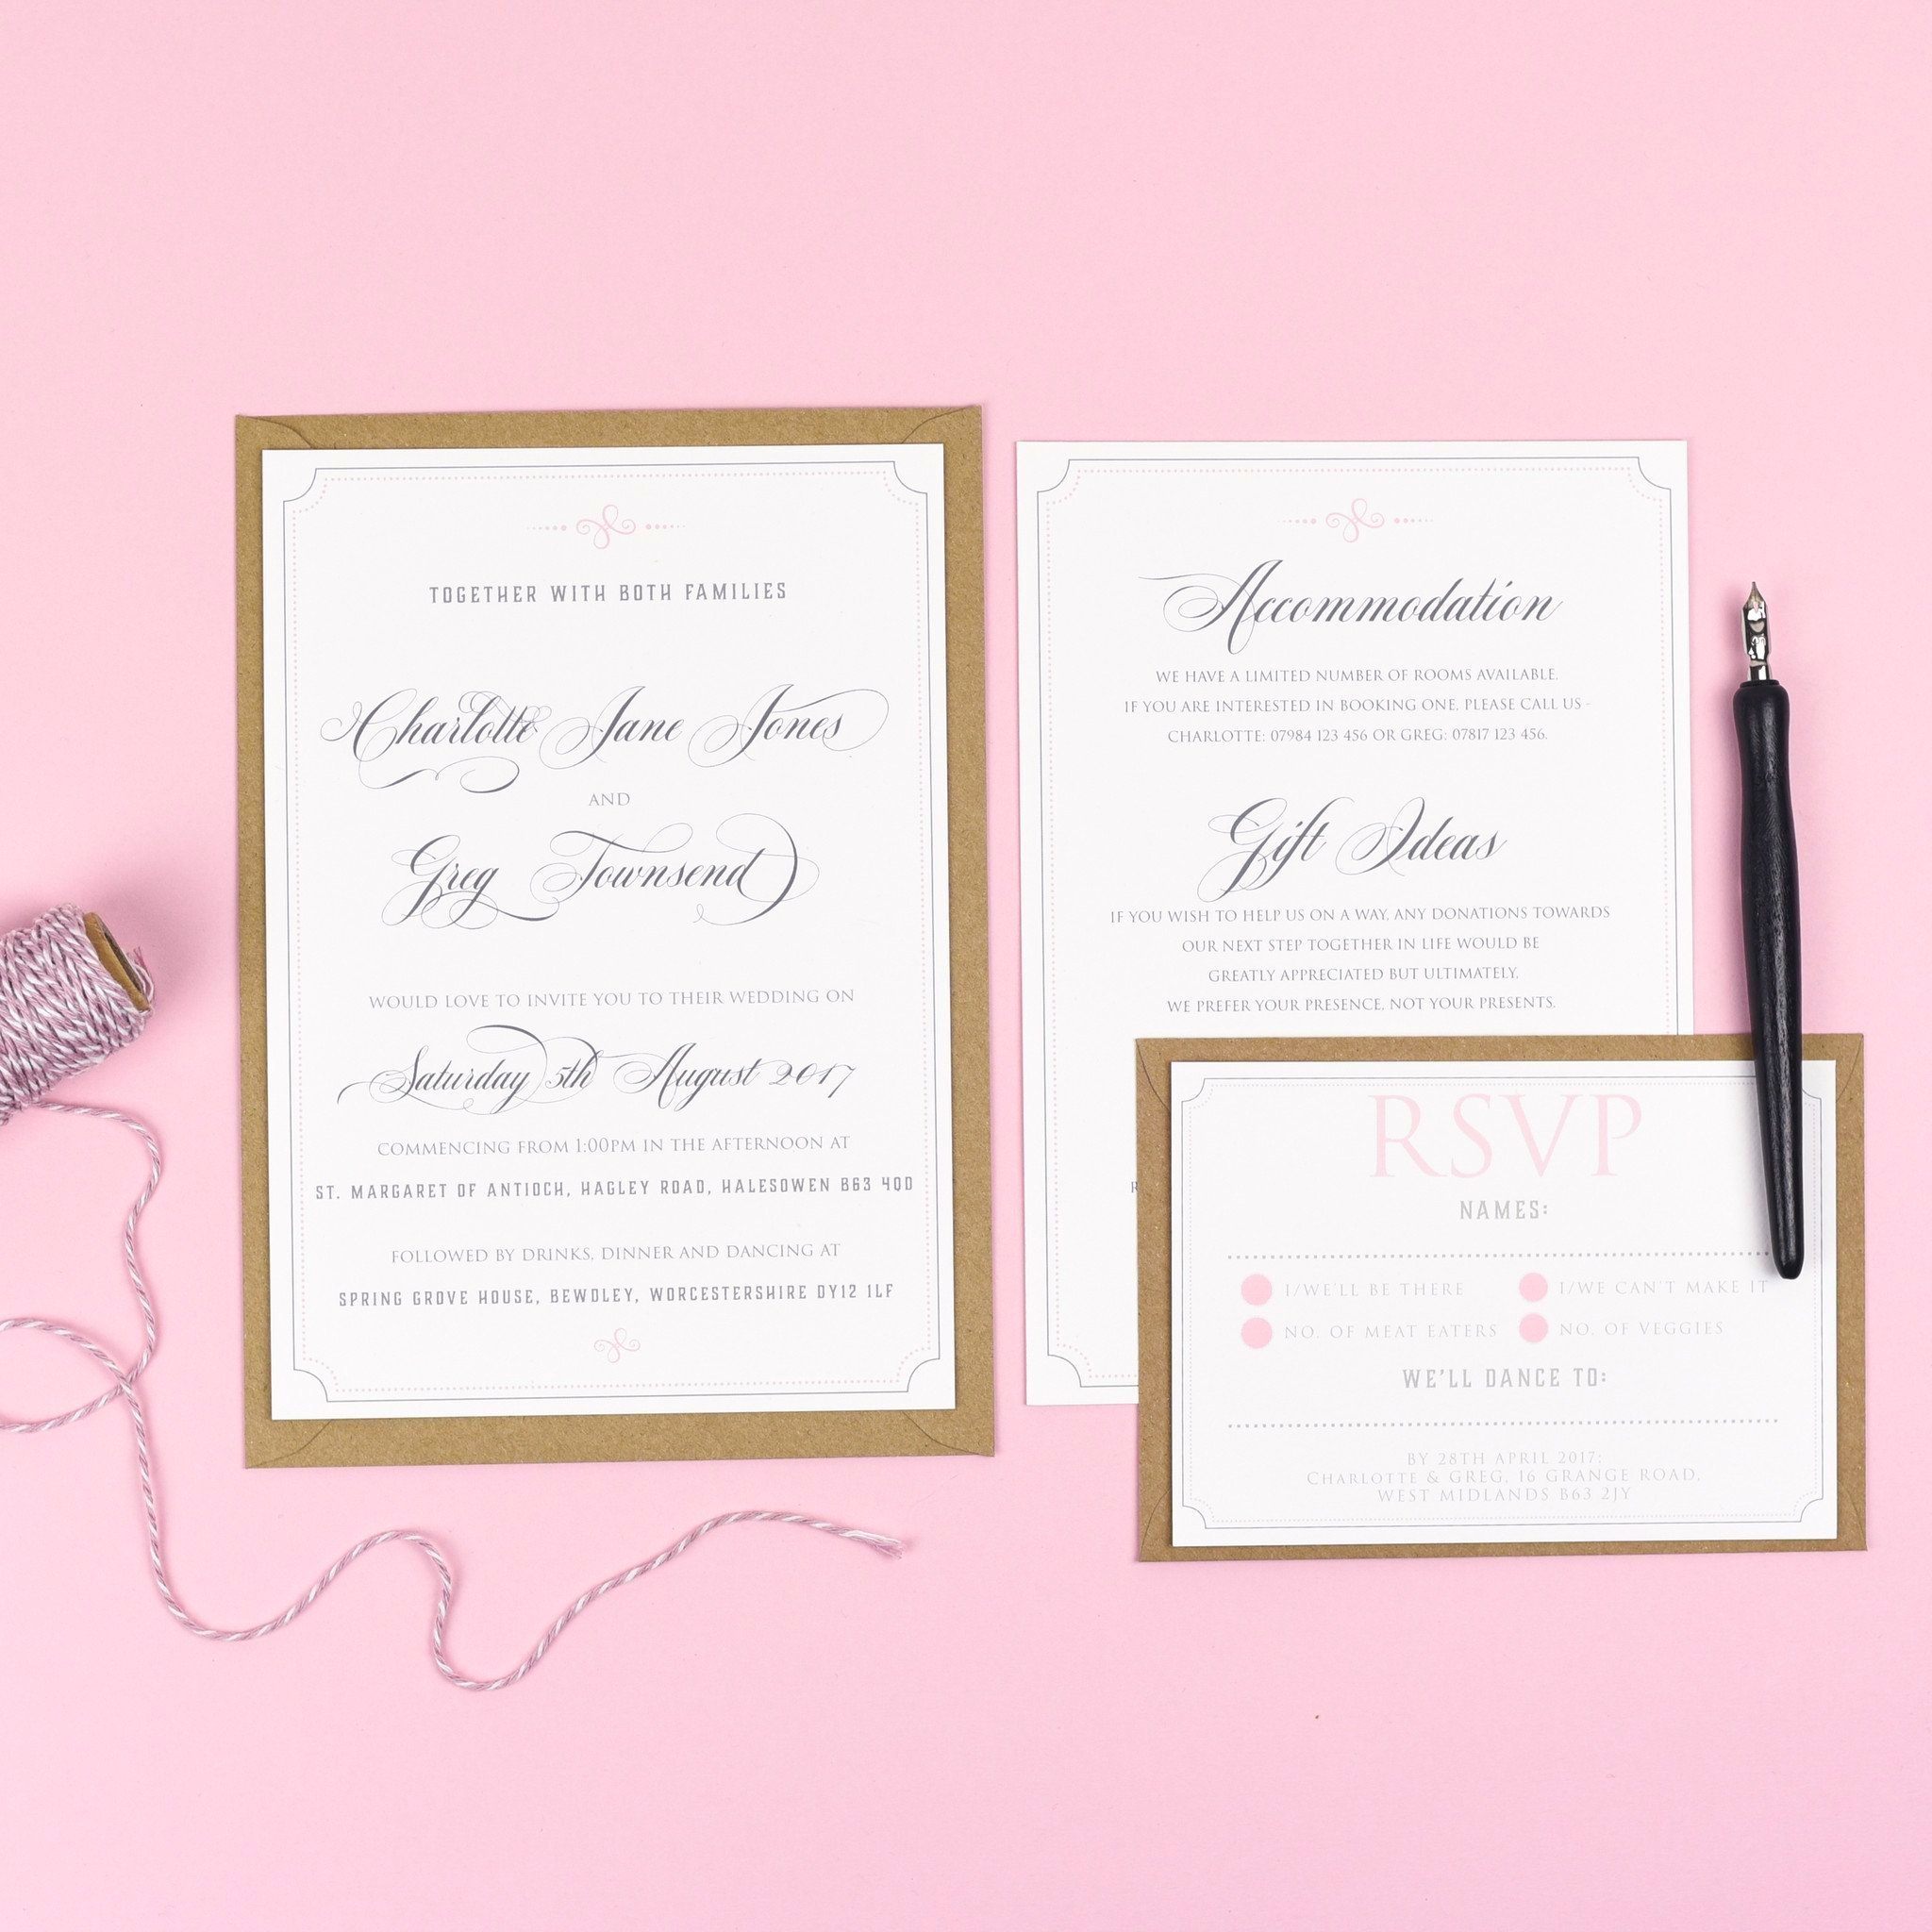 TOGETHER WITH BOTH FAMILIES
Charlotte Jane Jones
AND
Greg Townsend
WOULD LOVE TO INVITE YOU TO THEIR WEDDING ON
Saturday 5th August 2017
COMMENCING FROM 1:00PM IN THE AFTERNOON AT
ST. MARGARET OF ANTIOCH, HAGLEY ROAD, HALESOWEN B63 4QD
FOLLOWED BY DRINKS, DINNER AND DANCING AT
SPRING GROVE HOUSE, BEWDLEY, WORCESTERSHIRE DY12 1LF
Accommodation
WE HAVE A LIMITED NUMBER OF ROOMS AVAILABLE.
IF YOU ARE INTERESTED IN BOOKING ONE, PLEASE CALL US -
CHARLOTTE: 07984 123 456 OR GREG: 07817 123 456.
Gift Ideas
IF YOU WISH TO HELP US ON A WAY, ANY DONATIONS TOWARDS
OUR NEXT STEP TOGETHER IN LIFE WOULD BE
GREATLY APPRECIATED BUT ULTIMATELY,
WE PREFER YOUR PRESENCE, NOT YOUR PRESENTS.
RSVP
NAMES:
I/WE'LL BE THERE I/WE CAN'T MAKE IT
NO. OF MEAT EATERS NO. OF VEGGIES
WE'LL DANCE TO:
BY 28TH APRIL 2017:
CHARLOTTE & GREG, 16 GRANGE ROAD,
WEST MIDLANDS B63 2JY